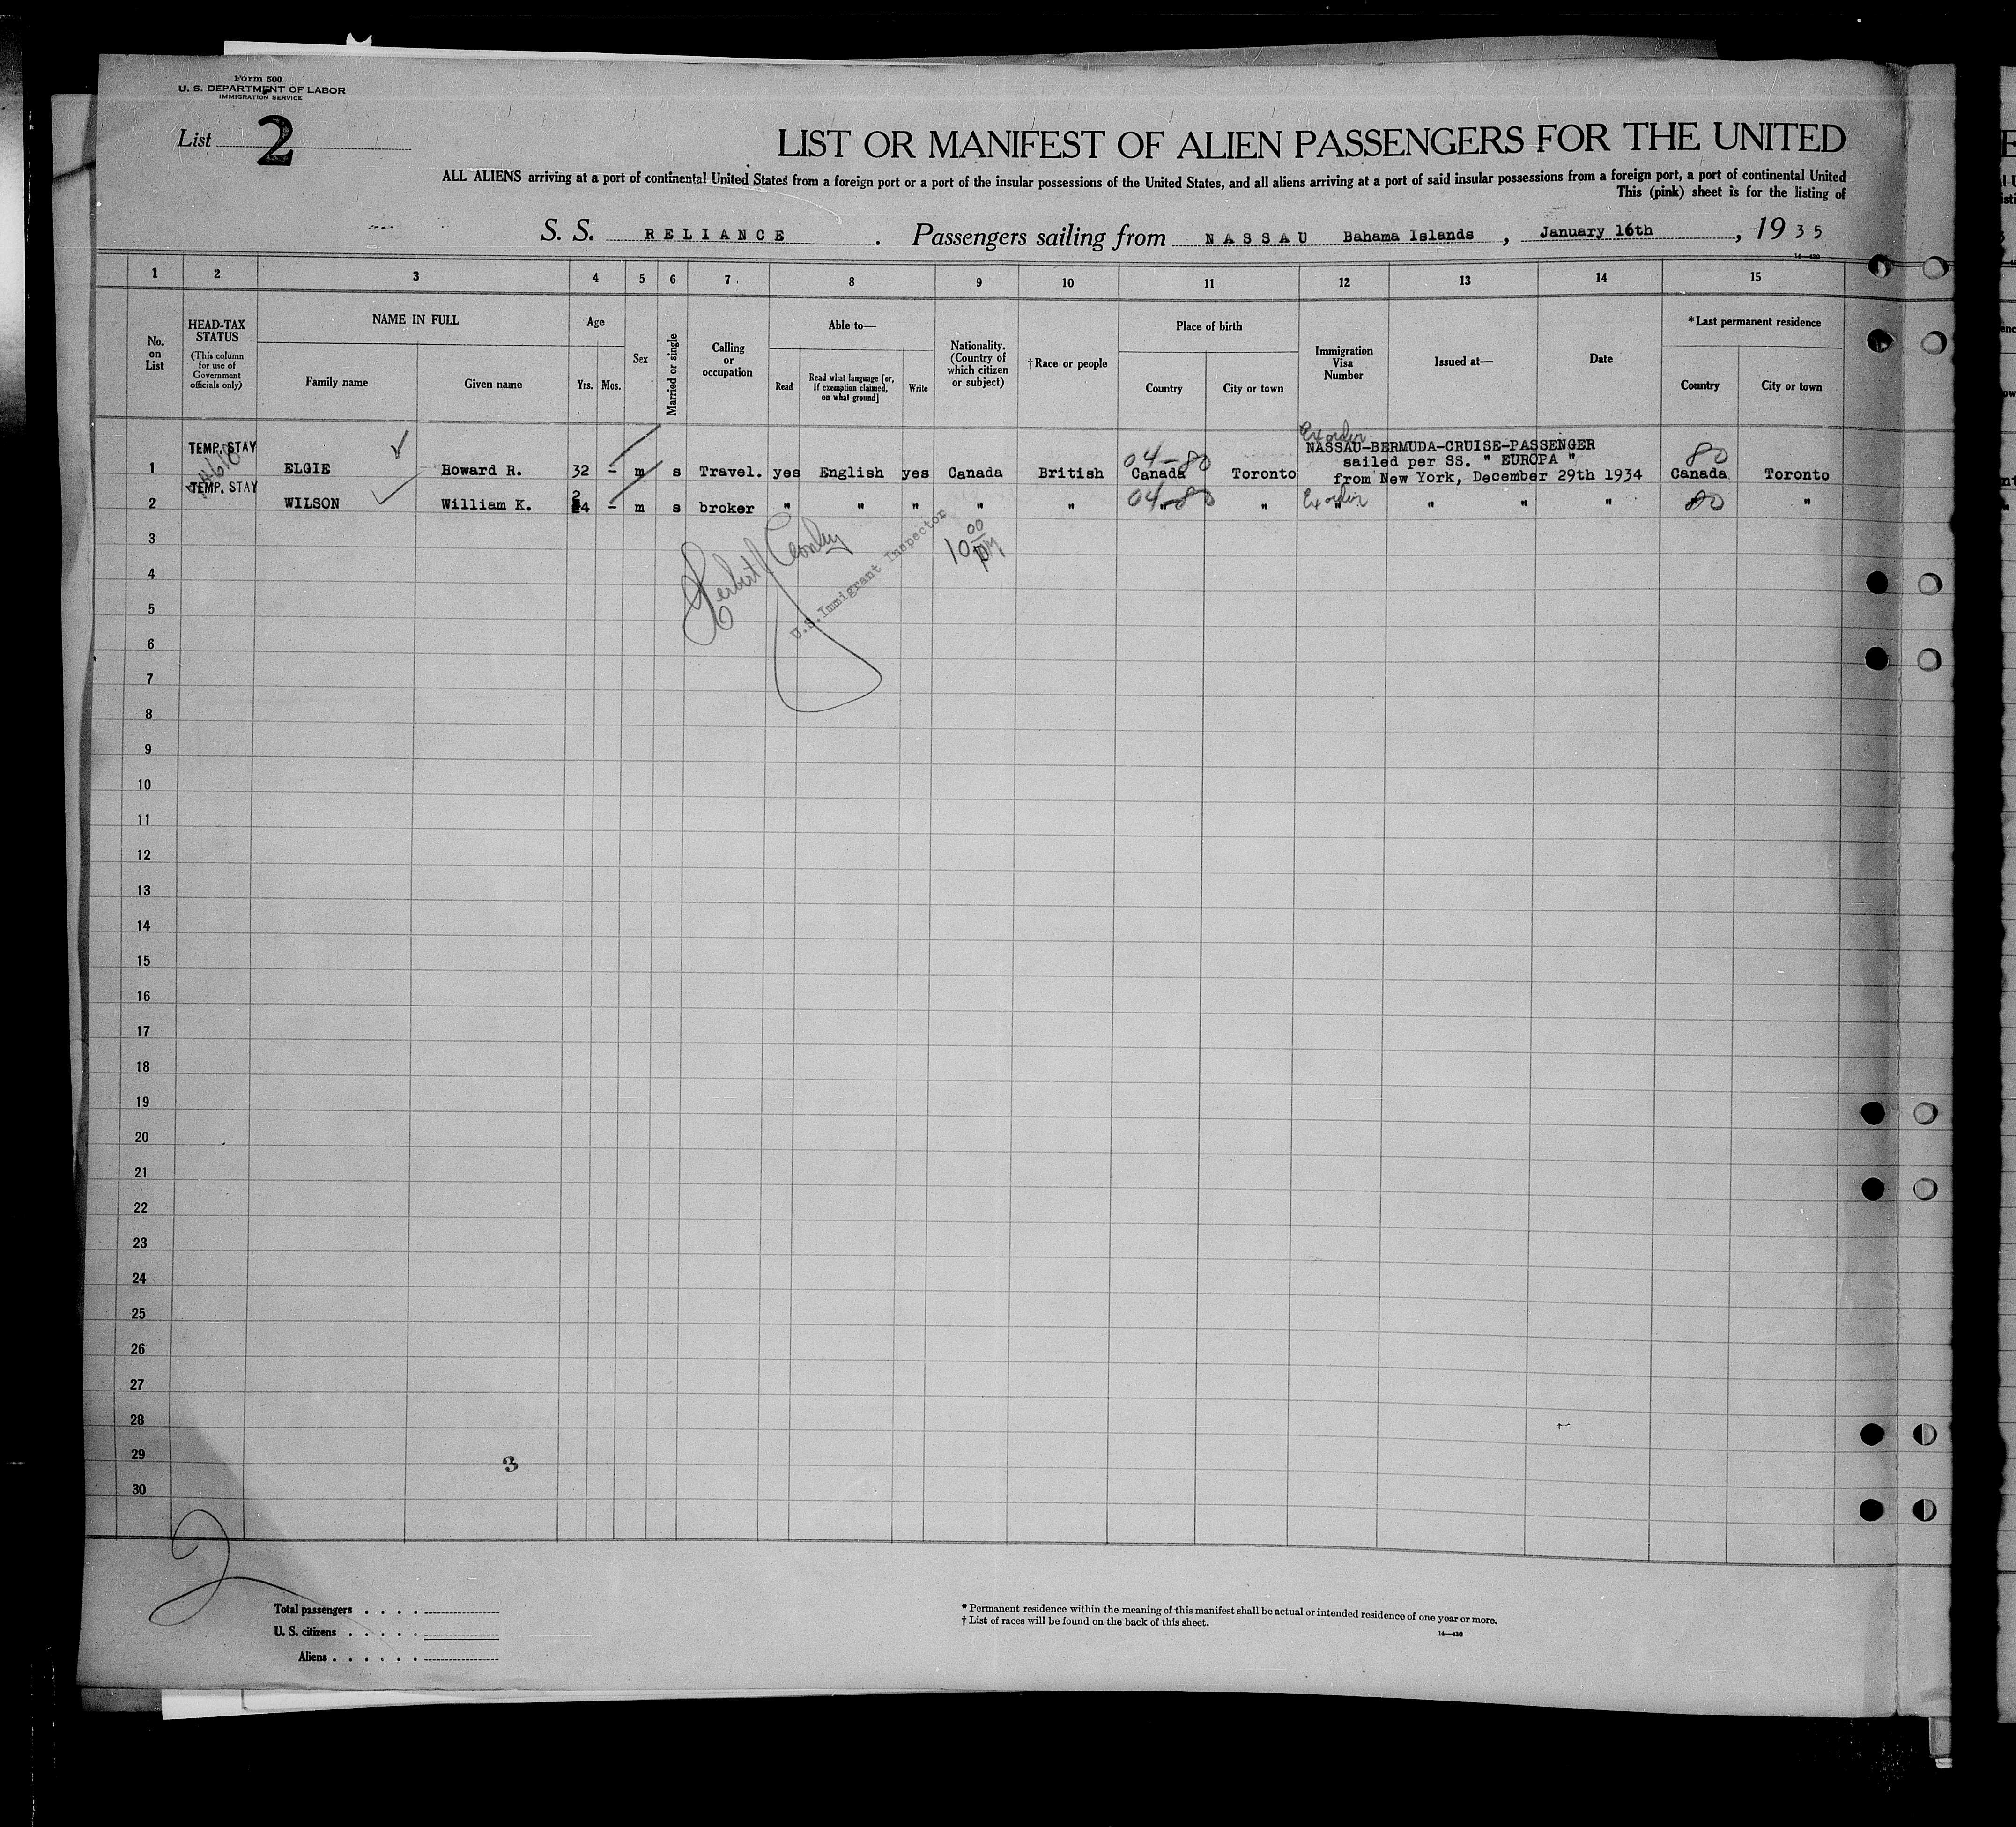 Form 500
U. S. DEPARTMENT OF LABOR
IMMIGRATION SERVICE
List 2
LIST OR MANIFEST OF ALIEN PASSENGERS FOR THE UNITED
ALL ALIENS arriving at a port of continental United States from a foreign port or a port of the insular possessions of the United States, and all aliens arriving at a port of said insular possessions from a foreign port, a port of continental United
This (pink) sheet is for the listing of
S. S. RELIANCE . Passengers sailing from NASSAU Bahama Islands , January 16th , 1935
14—430
1 2 3 4 5 6 7 8 9 10 11 12 13 14 15
No. on List
HEAD-TAX STATUS
(This column for use of Government officials only)
NAME IN FULL
Family name
Given name
Age
Yrs. Mos.
Sex
Married or single
Calling or occupation
Able to—
Read
Read what language [or, if exemption claimed, on what ground]
Write
Nationality. (Country of which citizen or subject)
†Race or people
Place of birth
Country
City or town
Immigration Visa Number
Issued at—
Date
*Last permanent residence
Country
City or town
TEMP. STAY
Ex order
NASSAU-BERMUDA-CRUISE-PASSENGER
04-80
sailed per SS. " EUROPA "
80
1 ELGIE Howard R. 32 - m s Travel. yes English yes Canada British Canada Toronto from New York, December 29th 1934 Canada Toronto
TEMP. STAY
2 WILSON William K. 24 - m s broker " " " " " 04-80 " " Ex order " " " " 80 "
3
4
5
6
7
8
9
10
11
12
13
14
15
16
17
18
19
20
21
22
23
24
25
26
27
28
29
30
10 00 PM
U.S. Immigrant Inspector
3
2
Total passengers
U. S. citizens
Aliens
* Permanent residence within the meaning of this manifest shall be actual or intended residence of one year or more.
† List of races will be found on the back of this sheet.
14—430